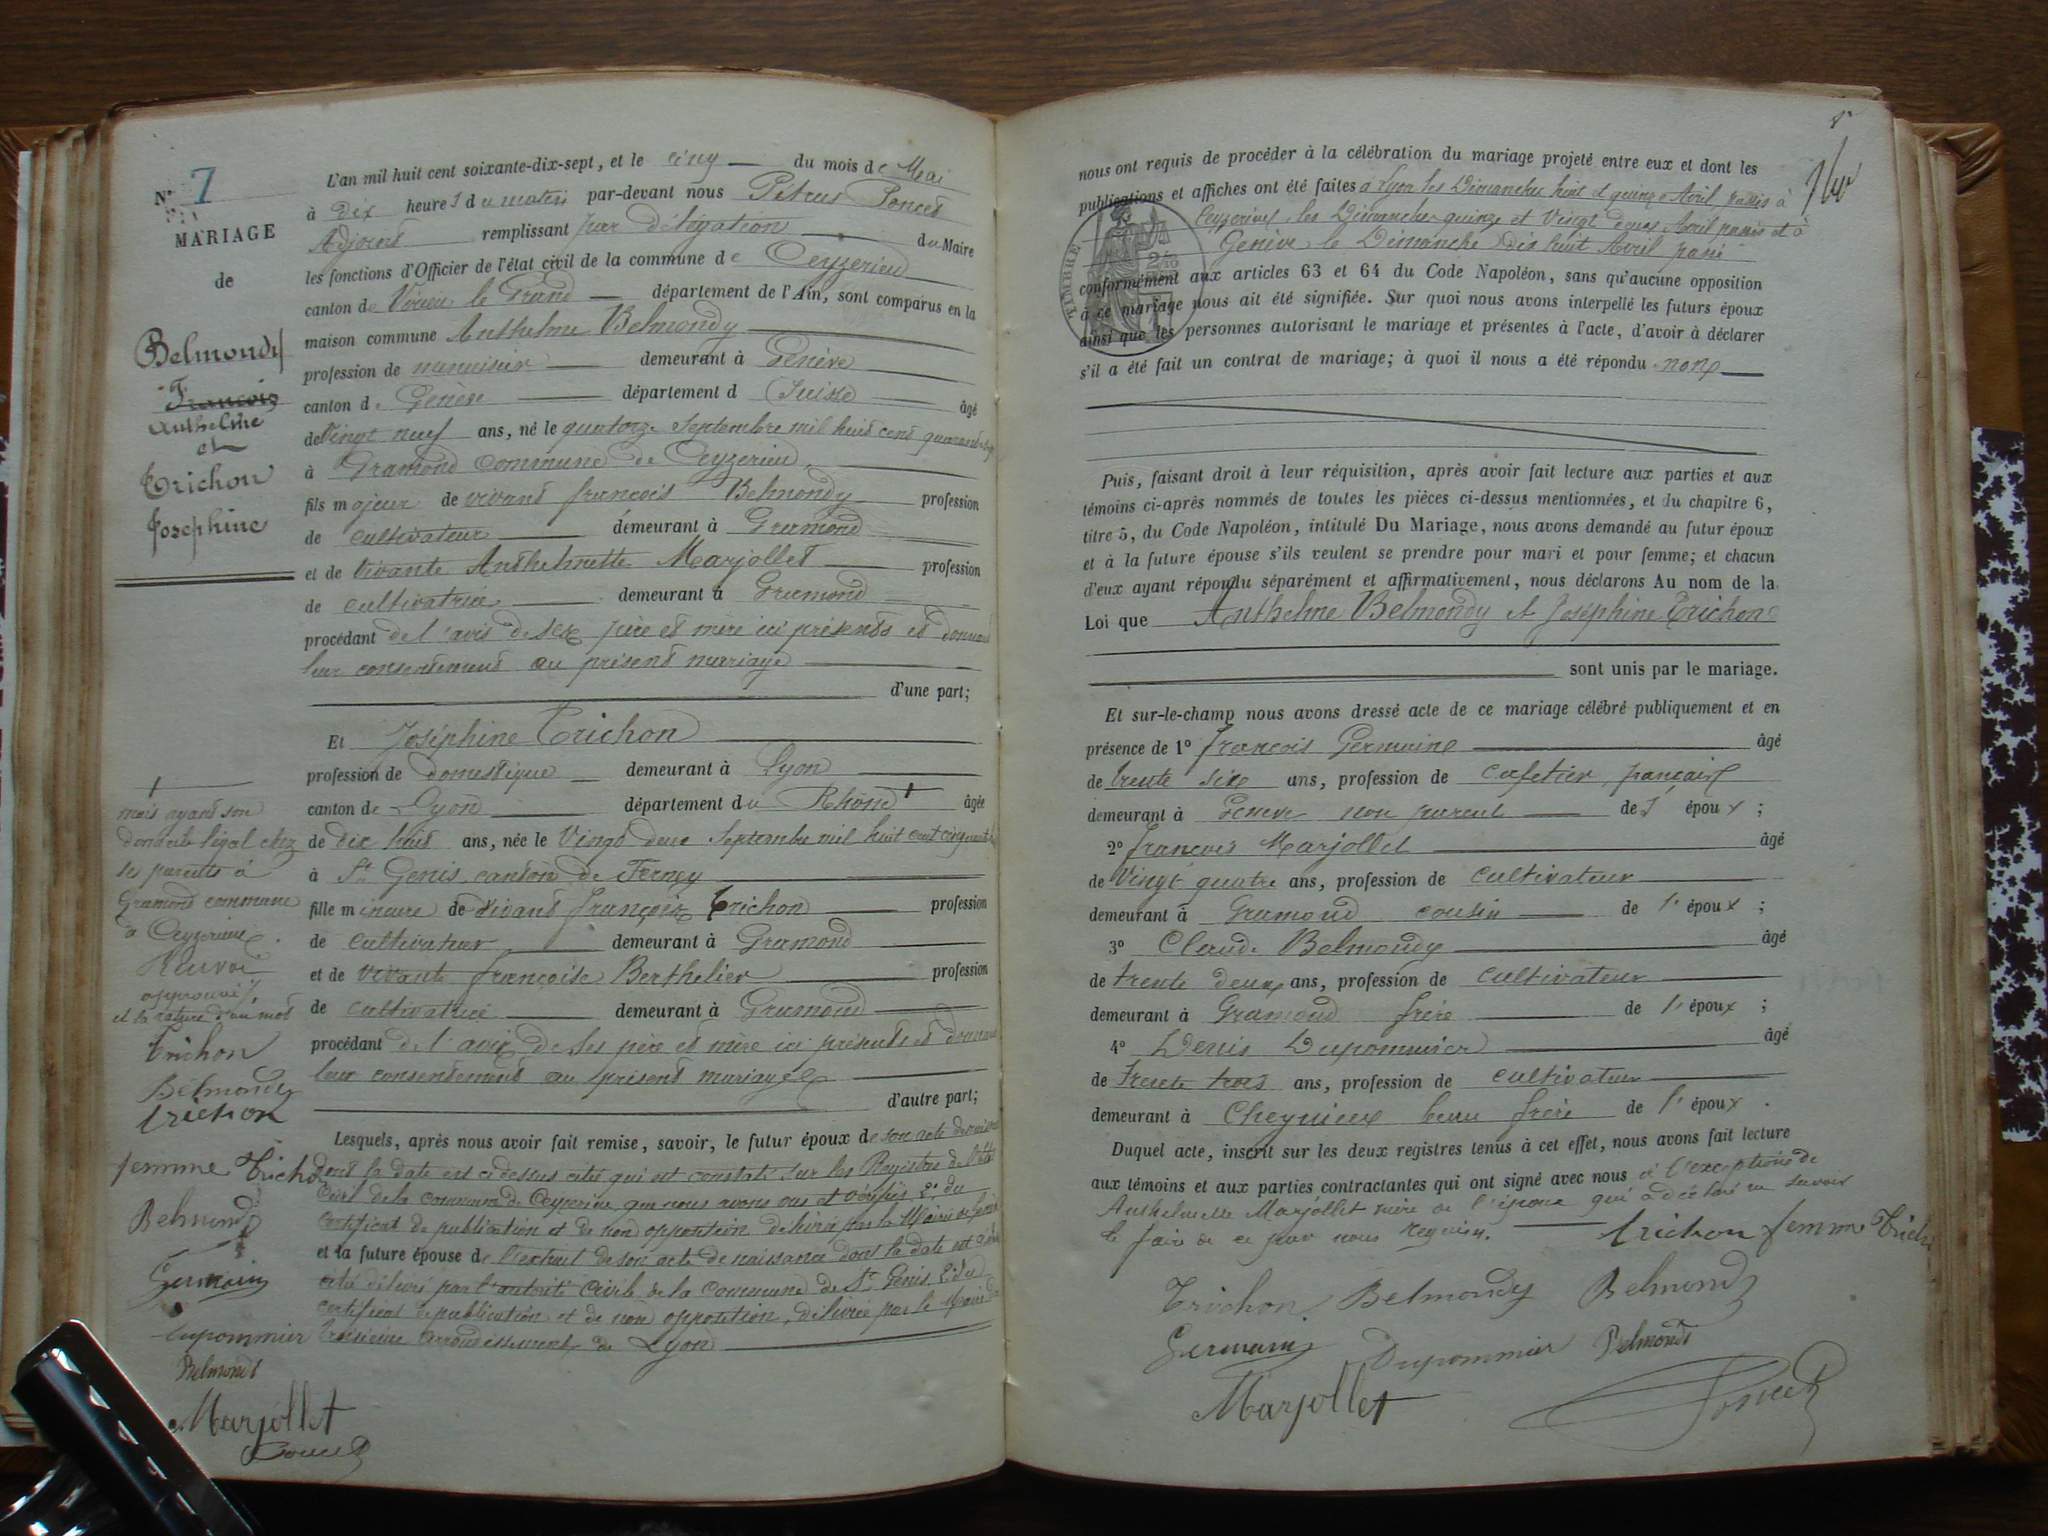 N° 7
MARIAGE
de
Belmondy
François
Anthelme
et
Trichon
Joséphine
L'an mil huit cent soixante-dix-sept, et le cinq du mois de Mai
à dix heures du matin par-devant nous Pétrus Poncet
Adjoint remplissant par délégation du Maire
les fonctions d'Officier de l'état civil de la commune de Ceyzerieu
canton de Virieu le Grand département de l'Ain, sont comparus en la
maison commune Anthelme Belmondy
profession de menuisier demeurant à Genève
canton de Genève département d Suisse âgé
de Vingt neuf ans, né le quatorze Septembre mil huit cent quarante sept
à Gramond commune de Ceyzerieu
fils majeur de vivant françois Belmondy profession
de cultivateur demeurant à Gramond
et de Vivante Anthelmette Marjollet profession
de cultivatrice demeurant à Gramond
procédant de l'avis de ses père et mère ici présents et donnant
leur consentement au présent mariage
d'une part;
Et Joséphine Trichon
profession de domestique demeurant à Lyon
canton de Lyon département du Rhône âgée
de dix huit ans, née le Vingt deux Septembre mil huit cent cinquante
à St Genis canton de Ferney
fille mineure de vivant françois Trichon profession
de cultivateur demeurant à Gramond
et de vivante françoise Berthelier profession
de cultivatrice demeurant à Gramond
procédant de l'avis de ses père et mère ici présents et donnant
leur consentement au présent mariage
d'autre part;
Lesquels, après nous avoir fait remise, savoir, le futur époux de son acte de naissance
dont la date est ci dessus citée qui est constaté sur les Registres de l'état
Civil de la commune de Ceyzerieu que nous avons vus et vérifiés 2° du
certificat de publication et de non opposition délivré par le Maire de Genève
et la future épouse de l'extrait de son acte de naissance dont la date est ci dessus
citée délivré par l'autorité civile de la commune de St Genis 2° du
certificat de publication et de non opposition, délivrée par le Maire du
troisième arrondissement de Lyon
mais ayant son
domicile légal chez
ses parents à
Gramond commune
de Ceyzerieu.
Renvoi
approuvé
et la rature d'un mot
Trichon
Belmondy
trichon
femme Trichon
Belmondy
Germain
Dupommier
Belmondi
Marjollet
Poncet
nous ont requis de procéder à la célébration du mariage projeté entre eux et dont les
publications et affiches ont été faites à Lyon les Dimanches huit et quinze Avril passés à
Ceyzerieu les Dimanches quinze et Vingt deux Avril passés et à
Genève le Dimanche dix huit Avril passé
TIMBRE
conformément aux articles 63 et 64 du Code Napoléon, sans qu'aucune opposition
à ce mariage nous ait été signifiée. Sur quoi nous avons interpellé les futurs époux
ainsi que les personnes autorisant le mariage et présentes à l'acte, d'avoir à déclarer
s'il a été fait un contrat de mariage; à quoi il nous a été répondu non
Puis, faisant droit à leur réquisition, après avoir fait lecture aux parties et aux
témoins ci-après nommés de toutes les pièces ci-dessus mentionnées, et du chapitre 6,
titre 5, du Code Napoléon, intitulé Du Mariage, nous avons demandé au futur époux
et à la future épouse s'ils veulent se prendre pour mari et pour femme; et chacun
d'eux ayant répondu séparément et affirmativement, nous déclarons Au nom de la
Loi que Anthelme Belmondy et Joséphine Trichon
sont unis par le mariage.
Et sur-le-champ nous avons dressé acte de ce mariage célébré publiquement et en
présence de 1° françois Germain âgé
de trente six ans, profession de cafetier français
demeurant à Genève non parent de l' époux ;
2° françois Marjollet âgé
de Vingt quatre ans, profession de cultivateur
demeurant à Gramond cousin de l' époux ;
3° Claude Belmondy âgé
de trente deux ans, profession de cultivateur
demeurant à Gramond frère de l' époux ;
4° Denis Dupommier âgé
de trente trois ans, profession de cultivateur
demeurant à Cheynieux beau frère de l' époux .
Duquel acte, inscrit sur les deux registres tenus à cet effet, nous avons fait lecture
aux témoins et aux parties contractantes qui ont signé avec nous à l'exception de
Anthelmette Marjollet mère de l'époux qui a déclaré ne savoir
le faire de ce par nous requise.
trichon femme Trichon
Trichon Belmondy Belmondy
Germain Dupommier Belmondi
Marjollet Poncet